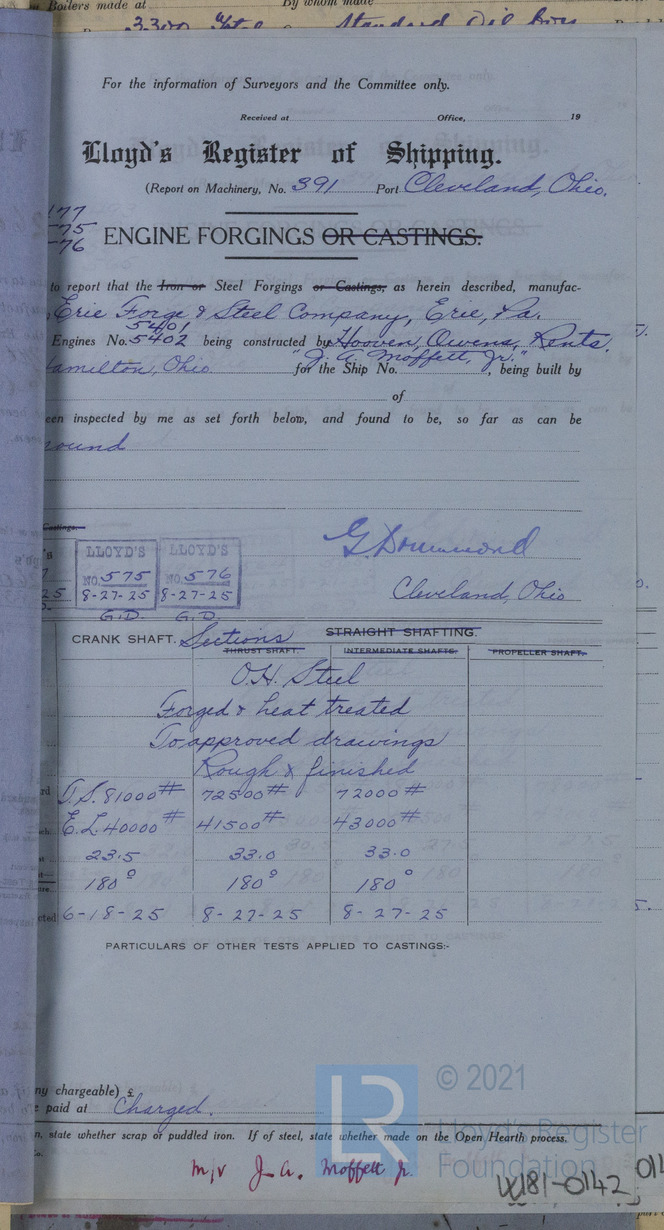 Boilers made at By whom made
3300 Standard Oil
For the information of Surveyors and the Committee only.
Received at Office, 19
Lloyd's Register of Shipping.
(Report on Machinery, No. 391 Port Cleveland, Ohio.
177
575
576
ENGINE FORGINGS OR CASTINGS.
to report that the Iron or Steel Forgings or Castings, as herein described, manufac-
Erie Forge & Steel Company, Erie, Pa.
5401
Engines No. 5402 being constructed by Hooven, Owens, Rents.
Hamilton, Ohio. for the Ship No. "J. A. Moffett, Jr.", being built by
of
een inspected by me as set forth below, and found to be, so far as can be
sound
Castings.
LLOYD'S LLOYD'S
NO. 575 NO. 576
8-27-25 8-27-25
G.D. G.D.
G. Drummond
Cleveland, Ohio
CRANK SHAFT. Sections STRAIGHT SHAFTING.
THRUST SHAFT. INTERMEDIATE SHAFTS. PROPELLER SHAFT.
O.H. Steel
Forged & heat treated
To approved drawings
Rough & finished
T.S. 81000# 72500# 72000#
E.L. 40000# 41500# 43000#
23.5 33.0 33.0
180° 180° 180°
cted 6-18-25 8-27-25 8-27-25
PARTICULARS OF OTHER TESTS APPLIED TO CASTINGS:-
ny chargeable) £
e paid at Charged.
n, state whether scrap or puddled iron. If of steel, state whether made on the Open Hearth process.
m/v J. A. Moffett Jr.
LR
© 2021
Lloyd's Register
Foundation
W181-0142